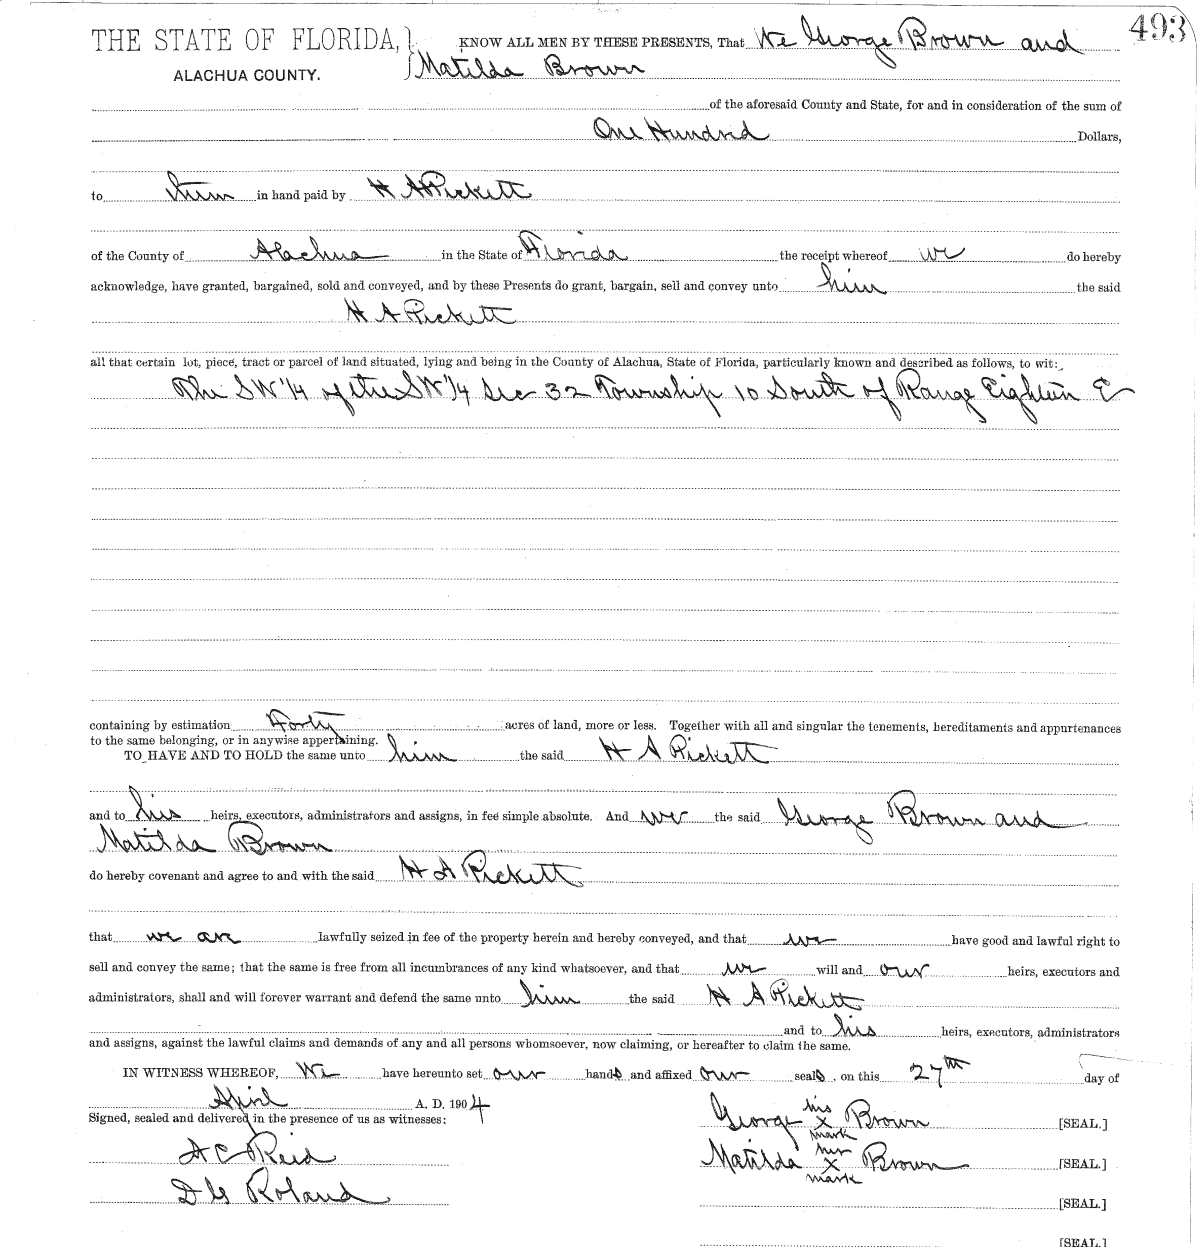 493
THE STATE OF FLORIDA, } KNOW ALL MEN BY THESE PRESENTS, That We George Brown and
ALACHUA COUNTY. Matilda Brown
of the aforesaid County and State, for and in consideration of the sum of
One Hundred Dollars,
to him in hand paid by H A Pickett
of the County of Alachua in the State of Florida the receipt whereof we do hereby
acknowledge, have granted, bargained, sold and conveyed, and by these Presents do grant, bargain, sell and convey unto him the said
H A Pickett
all that certain lot, piece, tract or parcel of land situated, lying and being in the County of Alachua, State of Florida, particularly known and described as follows, to wit:
The SW 1/4 of the SW 1/4 Sec 32 Township 10 South of Range Eighteen E
containing by estimation Forty acres of land, more or less. Together with all and singular the tenements, hereditaments and appurtenances
to the same belonging, or in anywise appertaining.
TO HAVE AND TO HOLD the same unto him the said H A Pickett
and to his heirs, executors, administrators and assigns, in fee simple absolute. And we the said George Brown and
Matilda Brown
do hereby covenant and agree to and with the said H A Pickett
that we are lawfully seized in fee of the property herein and hereby conveyed, and that we have good and lawful right to
sell and convey the same; that the same is free from all incumbrances of any kind whatsoever, and that we will and our heirs, executors and
administrators, shall and will forever warrant and defend the same unto him the said H A Pickett
and to his heirs, executors, administrators
and assigns, against the lawful claims and demands of any and all persons whomsoever, now claiming, or hereafter to claim the same.
IN WITNESS WHEREOF, We have hereunto set our hands and affixed our seals, on this 27th day of
April A. D. 1904
Signed, sealed and delivered in the presence of us as witnesses:
George his x mark Brown [SEAL.]
A C Reid
Matilda her x mark Brown [SEAL.]
D G Roland
[SEAL.]
[SEAL.]